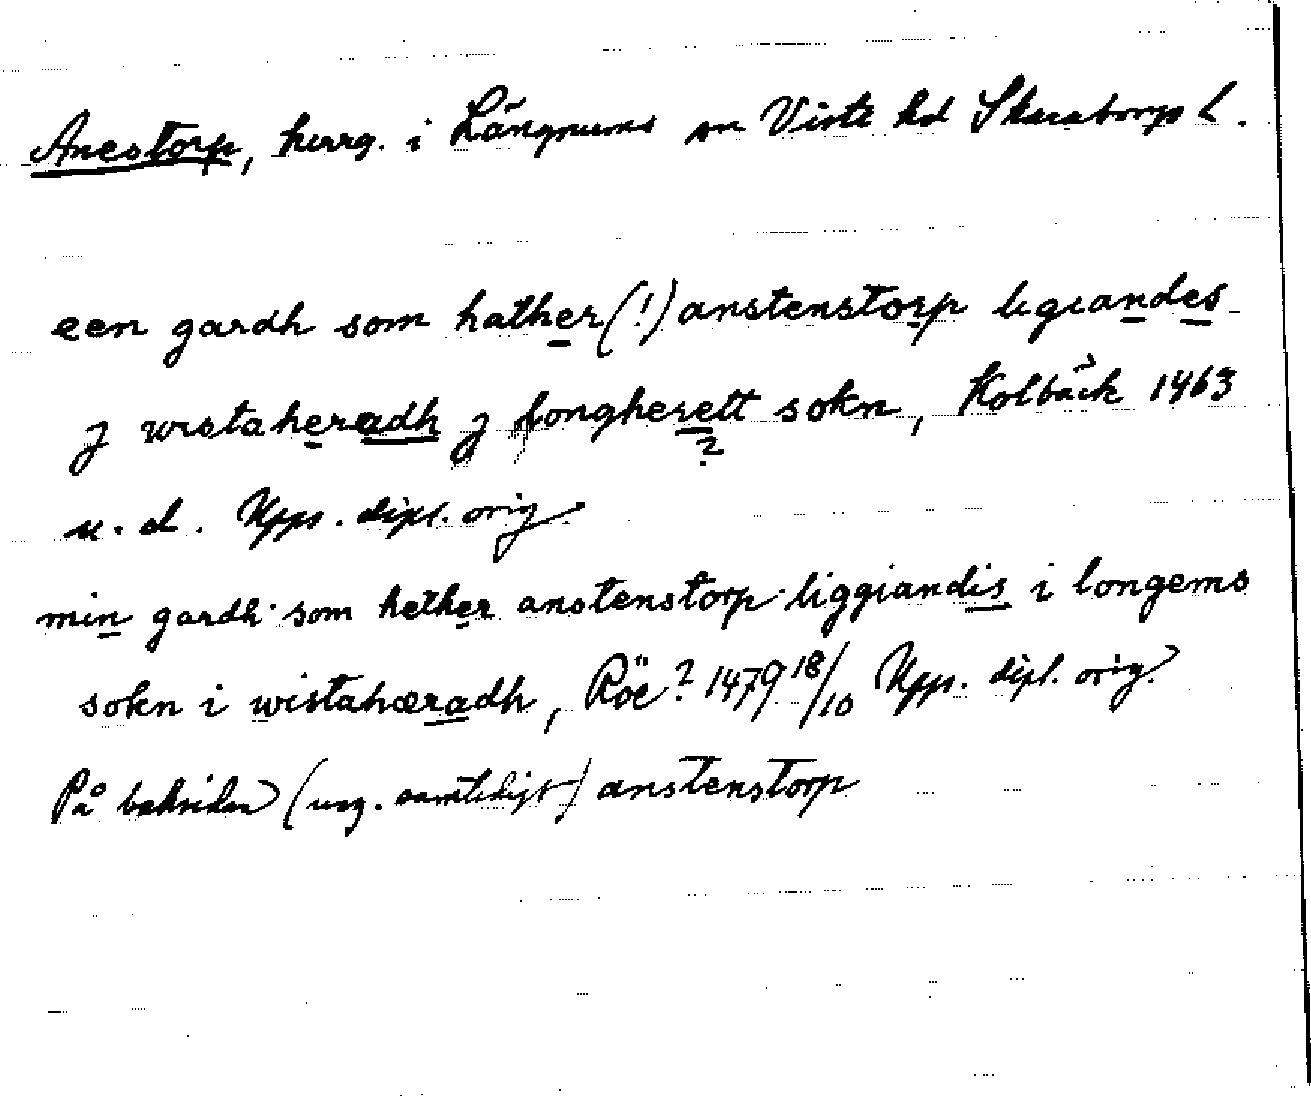 Anestorp, herrg. i Långnums sn Viste hd Skaraborgs l.
een gardh som hather (!) anstenstorp ligiandes
j wistaheradh j fongherett sokn, Kolbäck 1463
?
u. d. Upps. dipl. orig.
min gardh som hether anstenstorp liggiandis i longems
sokn i wistahæradh, Röe? 1479 18/10 Upps. dipl. orig.
På baksidan (ung. samtidigt) anstenstorp